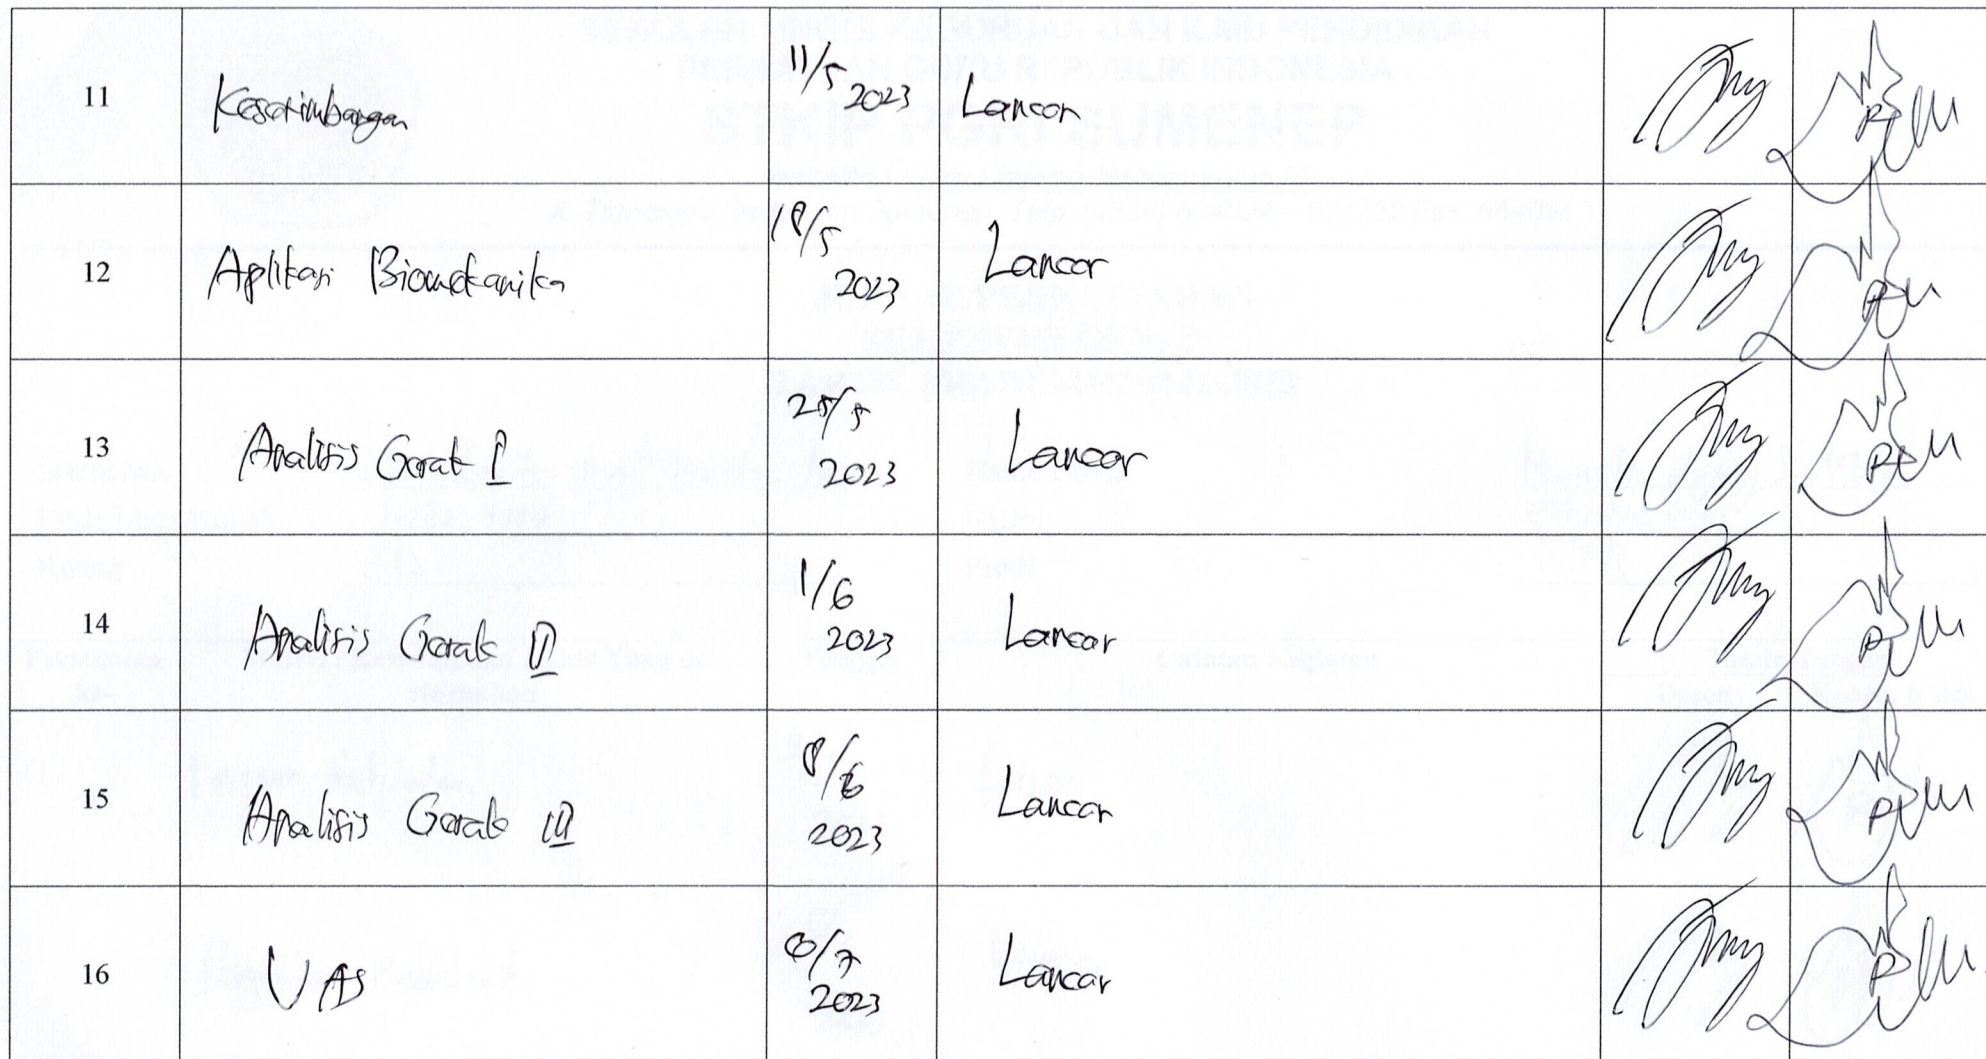 11 Kesetimbangan 11/5 2023 Lancar
12 Aplikasi Biomekanika 18/5 2023 Lancar
13 Analisis Gerak I 25/5 2023 Lancar
14 Analisis Gerak II 1/6 2023 Lancar
15 Analisis Gerak III 8/6 2023 Lancar
16 UAS 8/7 2023 Lancar